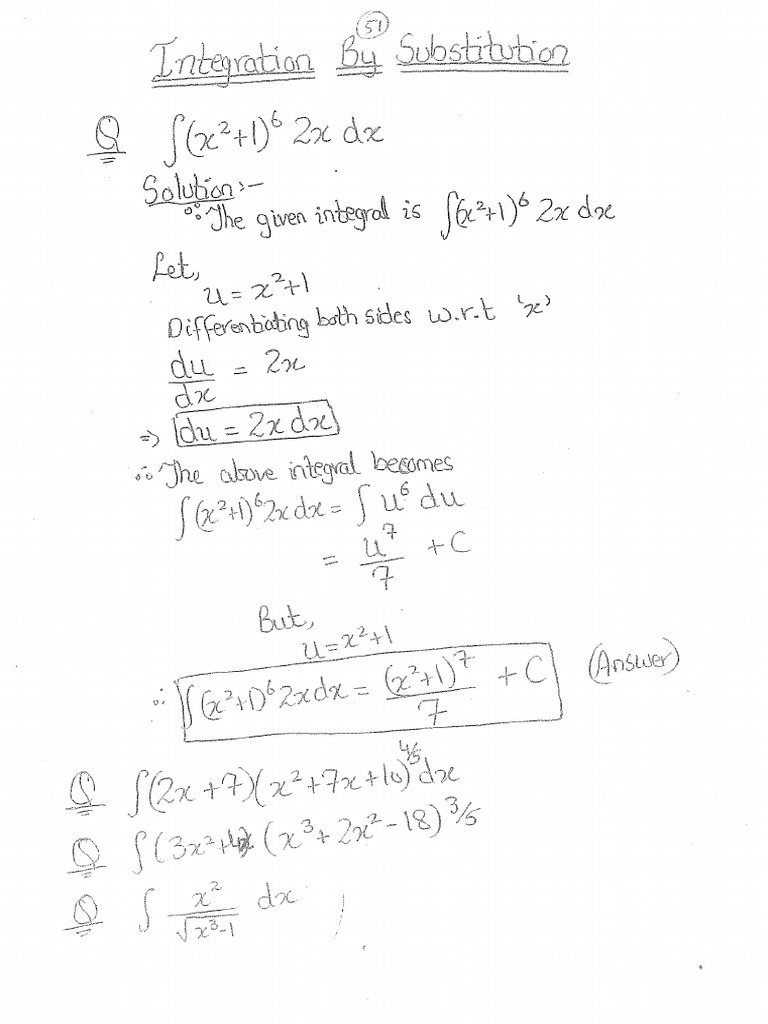 51
Integration By Substitution
Q ∫(x²+1)⁶ 2x dx
Solution:-
∵ The given integral is ∫(x²+1)⁶ 2x dx
Let,
u = x²+1
Differentiating both sides w.r.t 'x'
du/dx = 2x
⇒ du = 2x dx
∴ The above integral becomes
∫(x²+1)⁶ 2x dx = ∫ u⁶ du
= u⁷/7 + C
But,
u = x²+1
∴ ∫(x²+1)⁶ 2x dx = (x²+1)⁷/7 + C (Answer)
Q ∫(2x+7)(x²+7x+10)^4/5 dx
Q ∫(3x²+4x (x³+2x²-18)^3/5
Q ∫ x²/√x³-1 dx